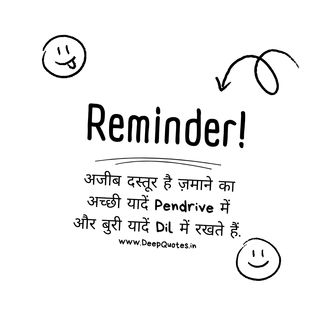 Reminder!
अजीब दस्तूर है ज़माने का
अच्छी यादें Pendrive में
और बुरी यादें Dil में रखते हैं.
www.DeepQuotes.in